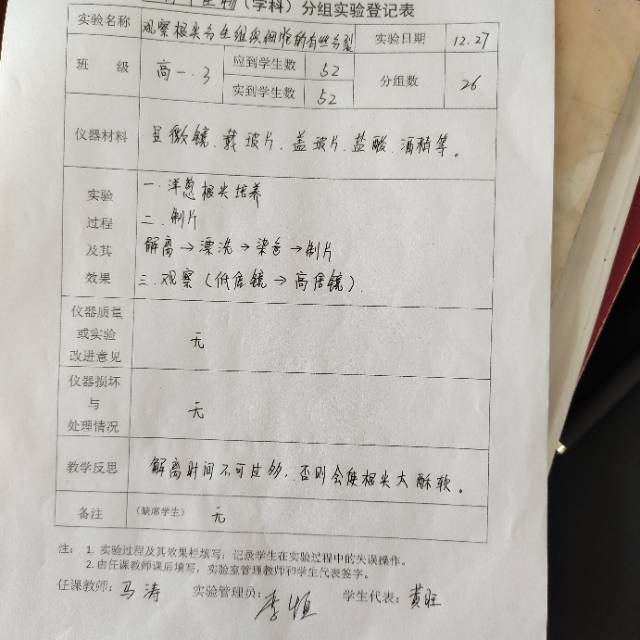 生物（学科）分组实验登记表
实验名称 观察根尖分生组织细胞的有丝分裂 实验日期 12.27
班级 高一.3 应到学生数 52 分组数 26
实到学生数 52
仪器材料 显微镜、载玻片、盖玻片、盐酸、酒精等。
实验 一、洋葱根尖培养
过程 二、制片
及其 解离→漂洗→染色→制片
效果 三、观察（低倍镜→高倍镜）
仪器质量
或实验 无
改进意见
仪器损坏
与 无
处理情况
教学反思 解离时间不可过多，否则会使根尖太酥软。
备注 （缺席学生） 无
注： 1. 实验过程及其效果栏填写：记录学生在实验过程中的失误操作。
2. 由任课教师课后填写，实验室管理教师和学生代表签字。
任课教师：马涛 实验管理员： 学生代表：黄旺